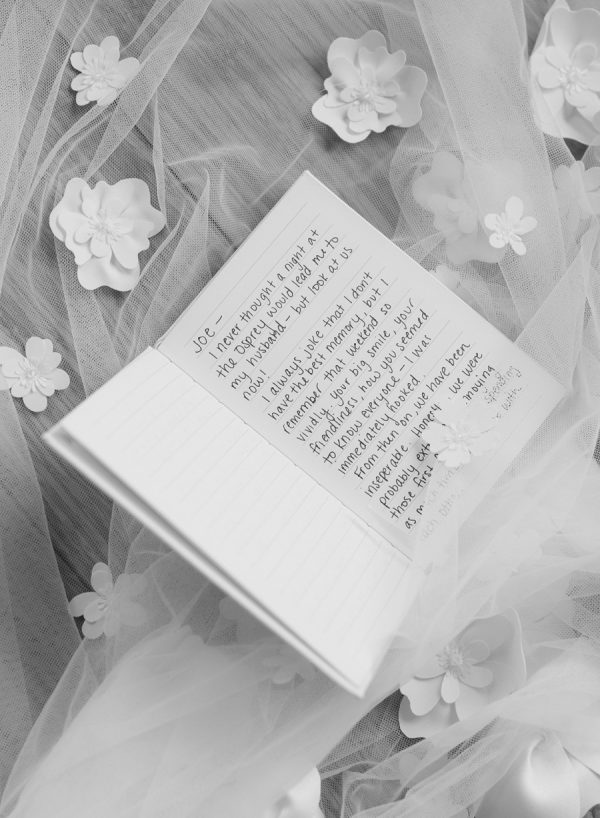 JOE –
I never thought a night at
the Osprey would lead me to
my husband – but look at us
now!
I always joke that I don't
have the best memory, but I
remember that weekend so
vividly: your big smile, your
friendliness, how you seemed
to know everyone – I was
immediately hooked.
From then on, we have been
inseperable. Honestly, we were
probably ext moving
those first spending
as much tim with
each other